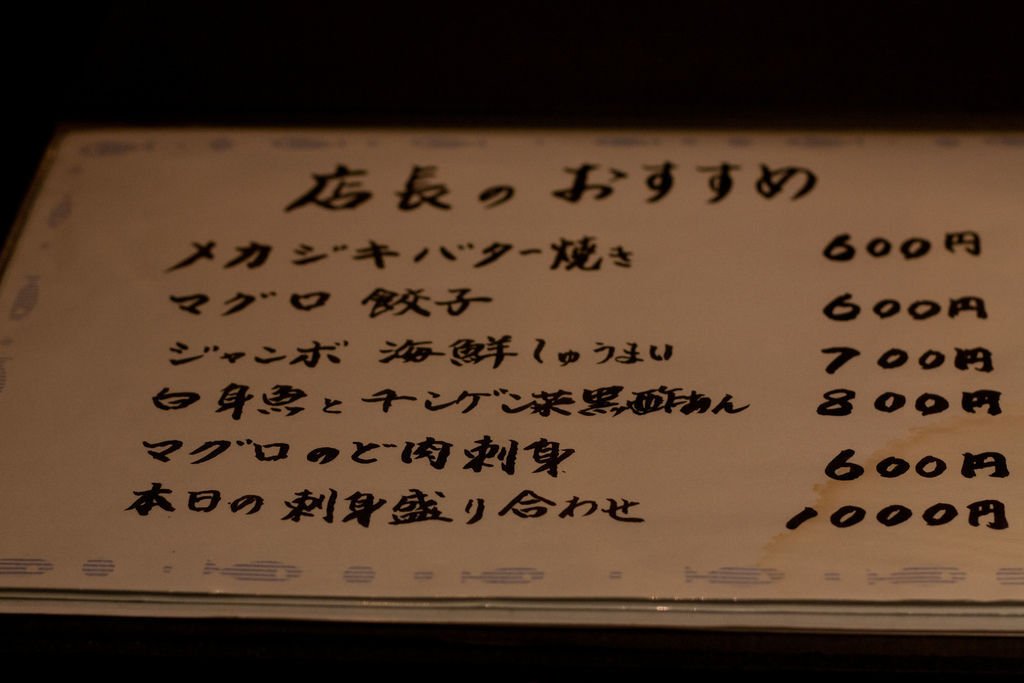 店長のおすすめ
メカジキバター焼き 600円
マグロ 餃子 600円
ジャンボ 海鮮しゅうまい 700円
白身魚とチンゲン菜黒酢あん 800円
マグロのど肉刺身 600円
本日の刺身盛り合わせ 1000円